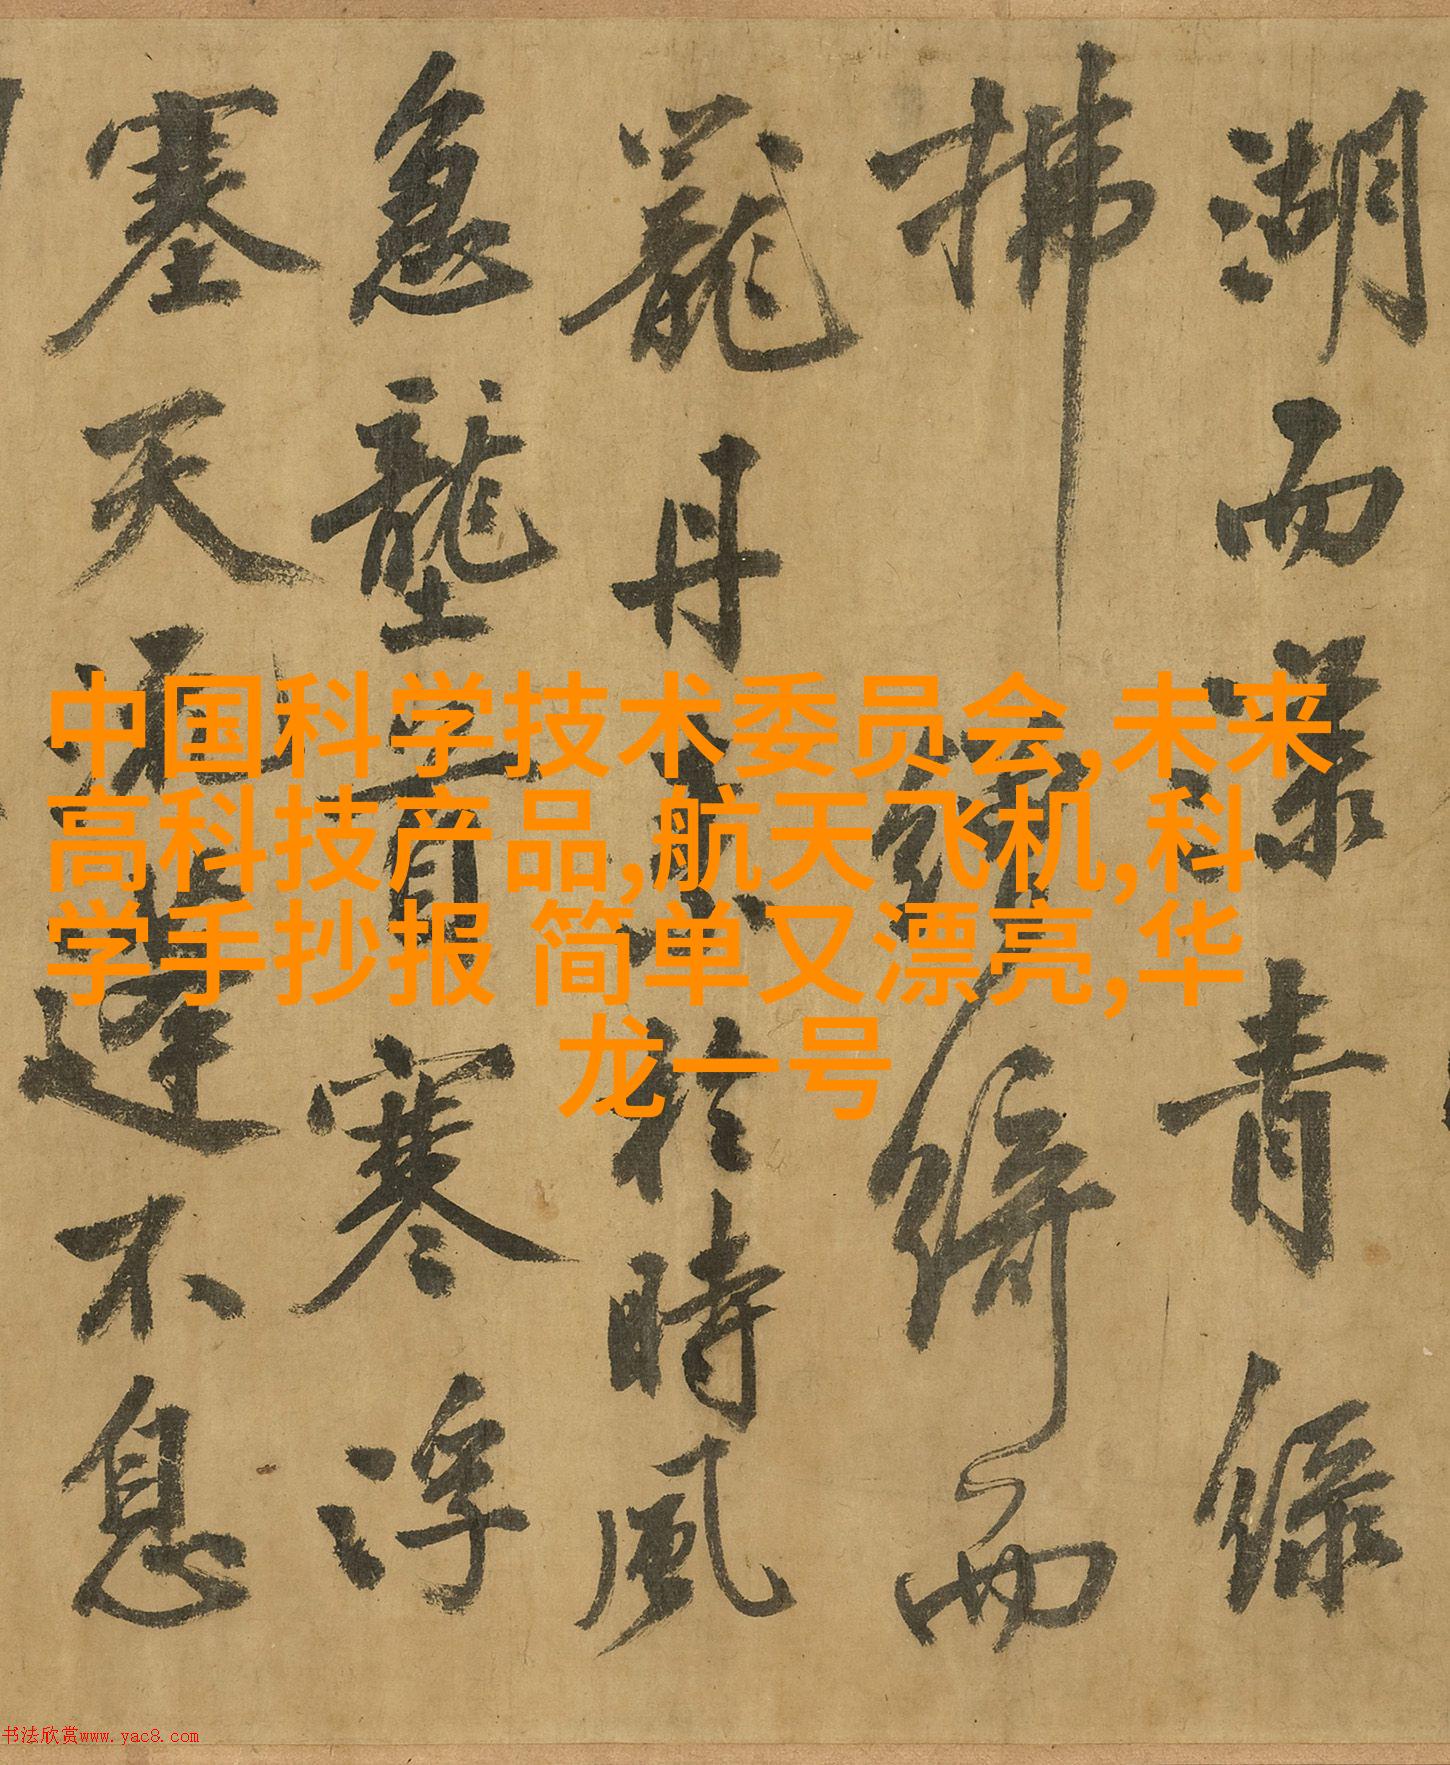 中国科学技术委员会,未来
高科技产品,航天飞机,科
学手抄报 简单又漂亮,华
龙一号
湖而漾青綠
拂綺而
丹於時風
急壟首寒浮
塞天不息
书法欣赏www.yac8.com